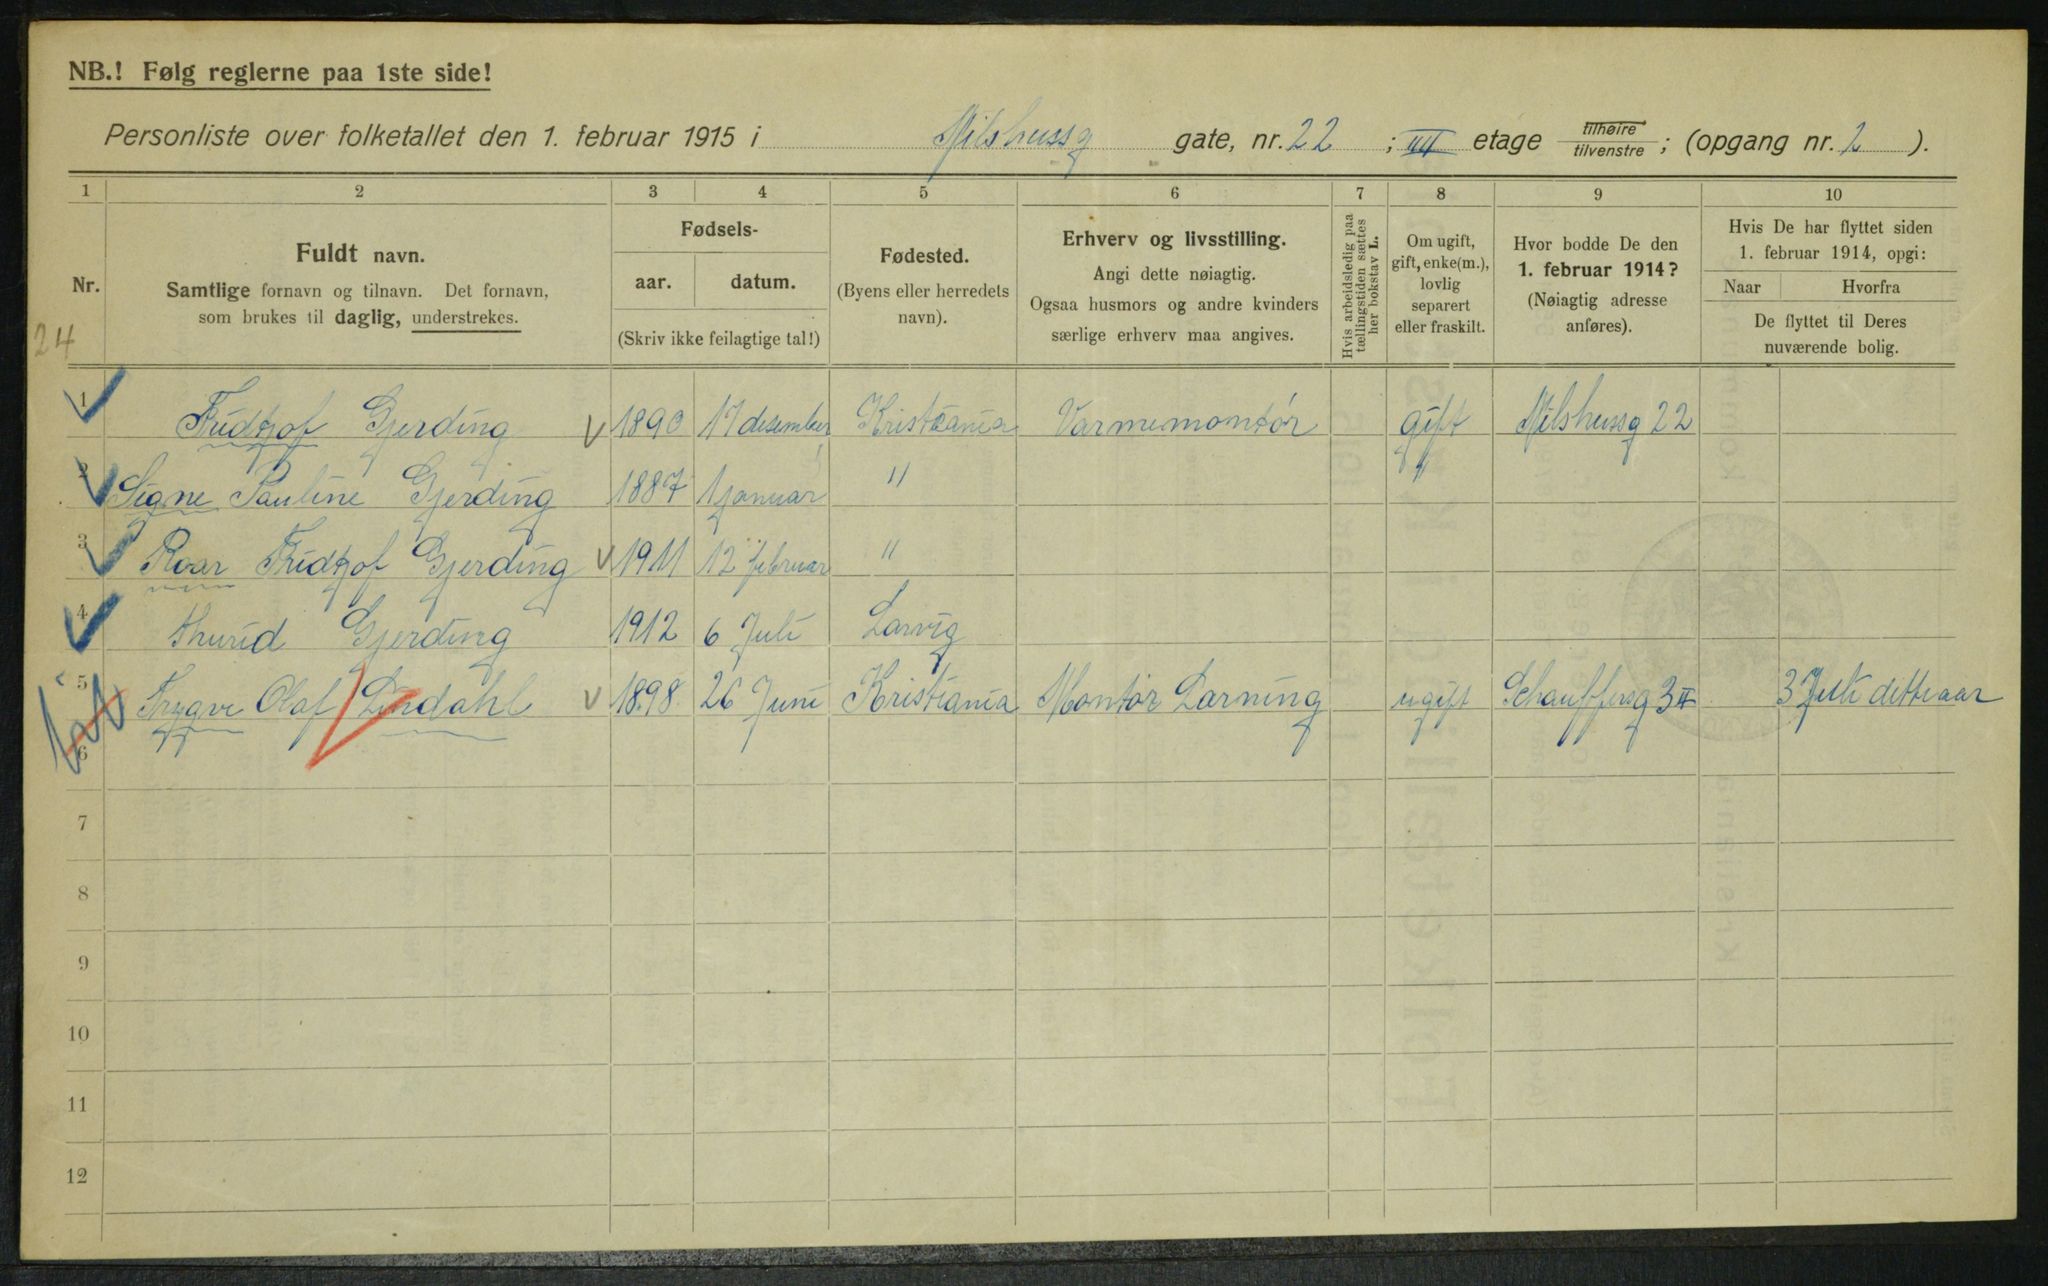 NB.! Følg reglerne paa 1ste side!
Personliste over folketallet den 1. februar 1915 i Nilshussg gate, nr. 22 ; III etage tilhøire tilvenstre ; (opgang nr. 2 ).
1 2 3 4 5 6 7 8 9 10
Nr.
Fuldt navn.
Samtlige fornavn og tilnavn. Det fornavn,
som brukes til daglig, understrekes.
Fødsels-
aar. datum.
(Skriv ikke feilagtige tal!)
Fødested.
(Byens eller herredets
navn).
Erhverv og livsstilling.
Angi dette nøiagtig.
Ogsaa husmors og andre kvinders
særlige erhverv maa angives.
Hvis arbeidsledig paa
tællingstiden sættes
her bokstav L.
Om ugift,
gift, enke(m.),
lovlig
separert
eller fraskilt.
Hvor bodde De den
1. februar 1914?
(Nøiagtig adresse
anføres).
Hvis De har flyttet siden
1. februar 1914, opgi:
Naar Hvorfra
De flyttet til Deres
nuværende bolig.
24
1 Fridtjof Gjerding 1890 17 desember Kristiania Varmemontør gift Nilshussg 22
2 Signe Pauline Gjerding 1887 1 januar " "
3 Roar Fridtjof Gjerding 1911 12 februar "
4 Thurid Gjerding 1912 6 Juli Larvig
5 Trygve Olaf Lindahl 1898 26 Juni Kristiania Montør Lærning ugift 3 II 3 Juli dette aar
6
7
8
9
10
11
12